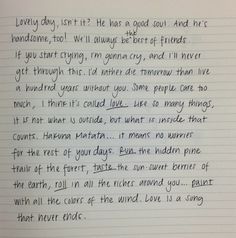 Lovely day, isn't it? He has a good soul. And he's
handsome, too! We'll always be the best of friends.
If you start crying, I'm gonna cry, and I'll never
get through this. I'd rather die tomorrow than live
a hundred years without you. Some people care too
much, I think it's called love. Like so many things,
it is not what is outside, but what is inside that
counts. Hakuna Matata... it means no worries
for the rest of your days. Run the hidden pine
trails of the forest, taste the sun-sweet berries of
the earth, roll in all the riches around you... paint
with all the colors of the wind. Love is a song
that never ends.